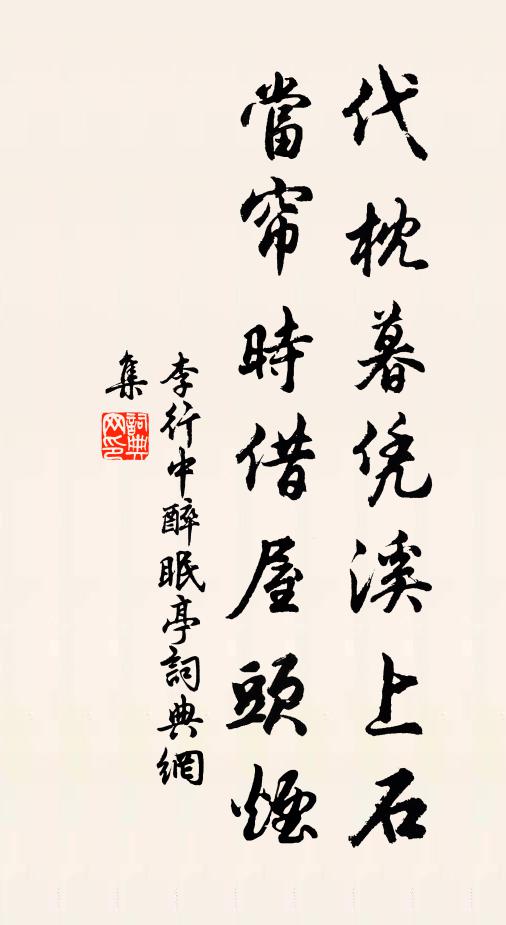 代枕暮凭溪上石
當帘時借屋頭煙
李行中醉眠亭詞典網
集
詞典
网印